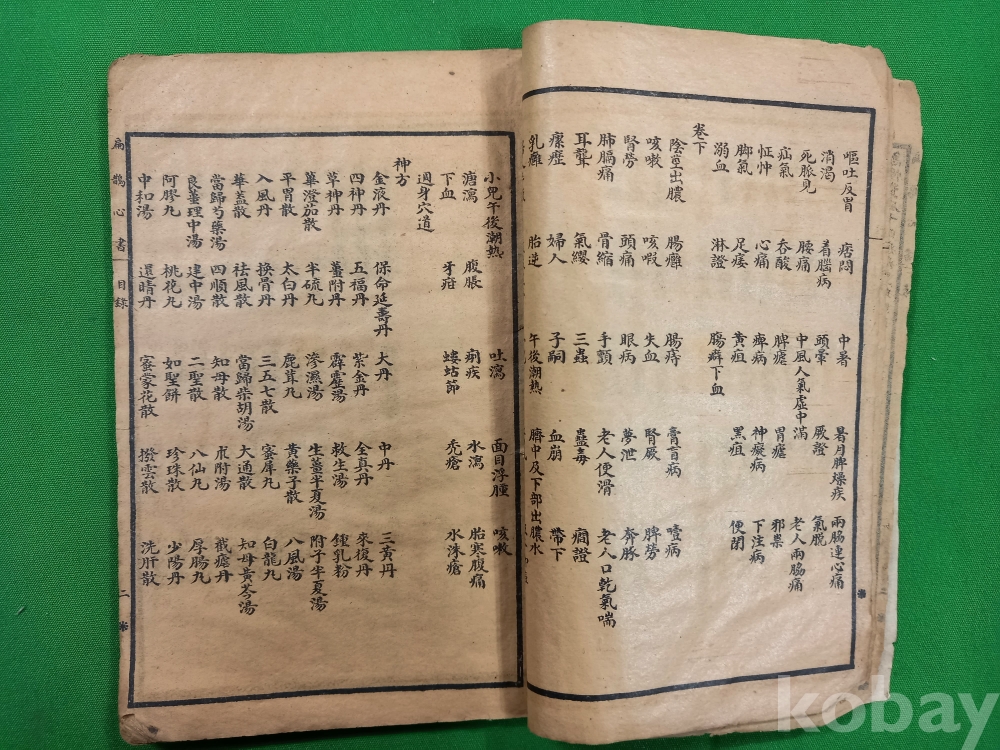 嘔吐反胃 痞悶 中暑 暑月脾燥疾 兩脇連心痛
消渴 着腦病 頭暈 厥證 氣脫
死脈見 腰痛 中風人氣虛中滿 老人兩脇痛
疝氣 吞酸 脾瘧 胃瘧 邪祟
怔忡 心痛 痺病 神癡病 下注病
脚氣 足痿 黃疸 黑疸 便閉
溺血 淋證 腸癖下血
卷下
陰莖出膿 腸癰 腸痔 膏肓病 噎病
咳嗽 咳暇 失血 腎厥 脾勞
腎勞 頭痛 眼病 夢泄 奔豚
肺膈痛 骨縮 手顫 老人便滑 老人口乾氣喘
耳聾 氣纓 三蟲 蠱毒 癎證
瘰癧 婦人 子嗣 血崩 帶下
乳癰 胎逆 午後潮熱 臍中及下部出膿水
小兒午後潮熱 腹脹 吐瀉 面目浮腫 咳嗽
溏瀉 痢疾 水瀉 胎寒腹痛
下血 牙疳 螻蛄節 禿瘡 水沫瘡
週身穴道
神方
金液丹 保命延壽丹 大丹 中丹 三黃丹
四神丹 五福丹 紫金丹 全真丹 來復丹
草神丹 薑附丹 霹靂湯 救生湯 鍾乳粉
蓽澄茄散 半硫丸 滲濕湯 生薑半夏湯 附子半夏湯
平胃散 太白丹 鹿茸丸 黃藥子散 八風湯
八風丹 換骨丹 三五七散 蜜犀丸 白龍丸
華蓋散 祛風散 當歸柴胡湯 大通散 知母黃芩湯
當歸芍藥湯 四順散 知母散 朮附湯 截瘧丹
良薑理中湯 建中湯 二聖散 八仙丸 厚腸丸
阿膠丸 桃花丸 如聖餅 珍珠散 少陽丹
中和湯 還睛丹 蜜蒙花散 撥雲散 洗肝散
扁鵲心書 目錄 二
kobay